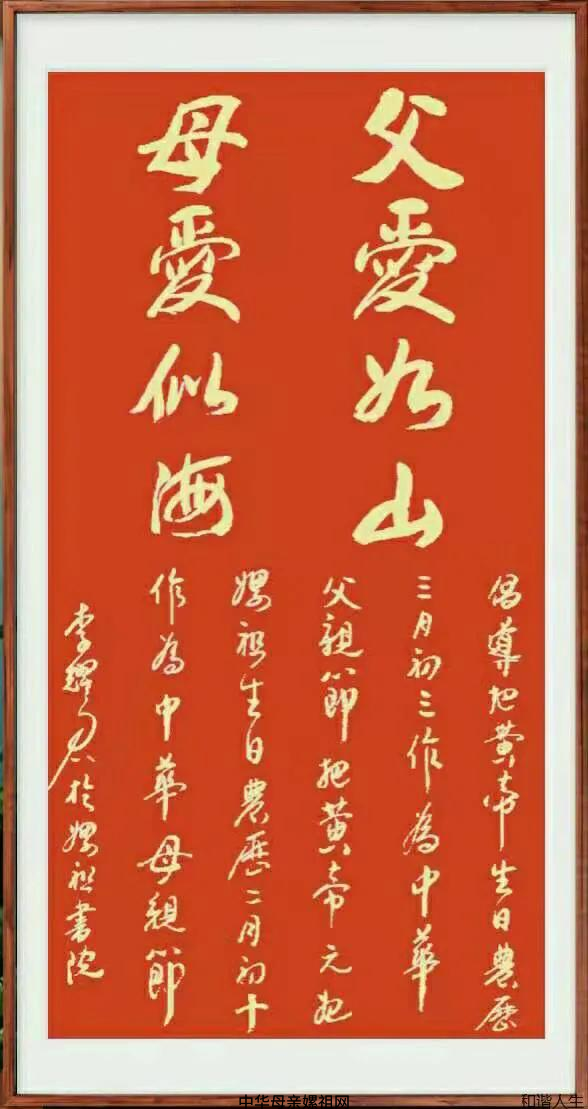 父愛如山
母愛似海
倡導把黄帝生日農歷
三月初三作為中華
父親節把黄帝元妃
嫘祖生日農歷二月初十
作為中華母親節
李耀君於嫘祖書院
中华母亲嫘祖网
和谐人生